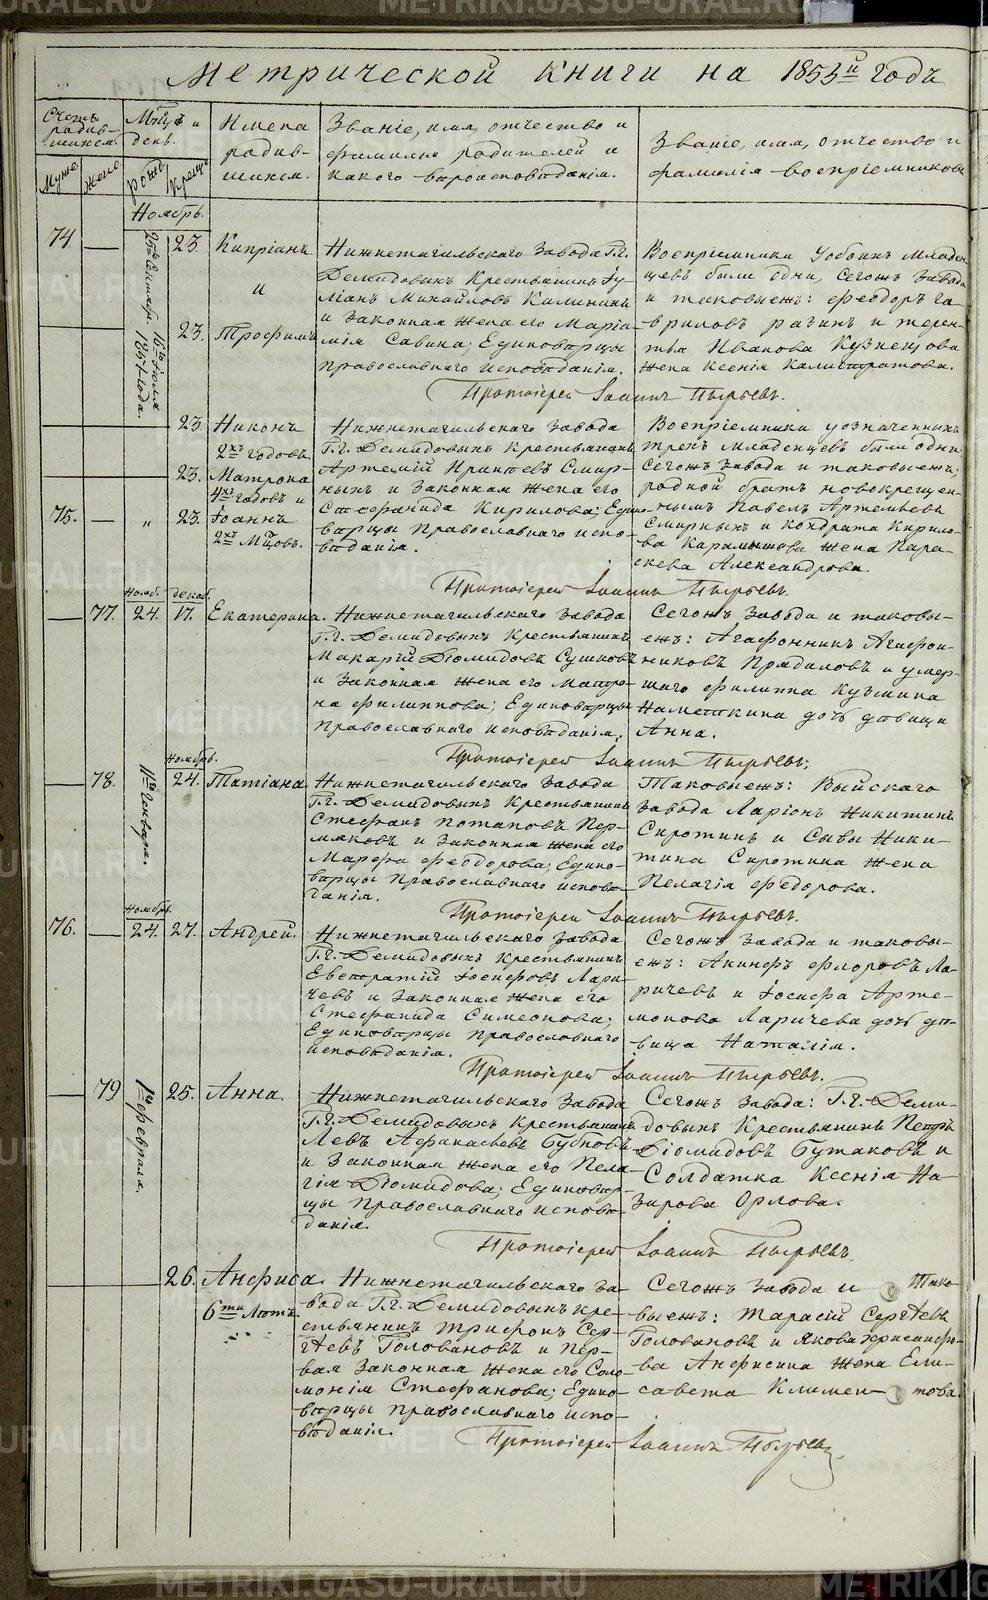 Метрической книги на 1853й годъ
Счетъ родив-
шихся.
Муже.
Жене.
Мѣсяцъ и
день.
Рожд.
Крещ.
Имена
родив-
шихся.
Званіе, имя, отчество и
фамилія родителей и
какого вѣроисповѣданія.
Званіе, имя, отчество и
фамилія воспріемниковъ
Ноябрь.
74
23.
Кипріанъ
и
23.
Трофимъ
Нижнетагильскаго завода Г.г.
Демидовыхъ Крестьянинъ Іу-
ліанъ Михайловъ Калининъ
и Законная жена его Марія-
мія Савина; Единовѣрцы
православнаго исповѣданія.
Воспріемники у обоихъ младен-
цевъ были одни, Сегожъ завода
и таковыежъ: Феодоръ Га-
вриловъ Рагинъ и Терен-
тья Иванова Кузнецова
жена Ксенія Калистратова.
Протоіерей Іоаннъ Пырьевъ.
23.
Никонъ
2хъ годовъ
23.
Матрона
4хъ годовъ и
75.
23.
Іоаннъ
2хъ М-цовъ.
Нижнетагильскаго завода
Г.г. Демидовыхъ Крестьянинъ
Артемій Смир-
ныхъ и Законная жена его
Стефанида Кирилова; Едино-
вѣрцы Православнаго испо-
вѣданія.
Воспріемники у означенныхъ
трехъ младенцевъ были одни
Сегожъ завода и таковыежъ;
родной братъ новокрещен-
нымъ Павелъ Артемьевъ
Смирныхъ и Кондрата Кирило-
ва Карамышева жена Пара-
скева Александрова.
Протоіерей Іоаннъ Пырьевъ.
77.
Нояб.
24.
Декаб.
17.
Екатерина.
Нижнетагильскаго завода
Г.г. Демидовыхъ Крестьянинъ
Макарій Діомидовъ Сушковъ
и Законная жена его Матро-
на Филиппова; Единовѣрцы
Православнаго исповѣданія.
Сегожъ завода и таковы-
ежъ: Агафонникъ Агафон-
никовъ Прядиловъ и умер-
шаго Филиппа Кузмина
Наметкина дочь дѣвица
Анна.
Протоіерей Іоаннъ Пырьевъ.
78.
11го Генваря.
Ноябрь.
24.
Татіана
Нижнетагильскаго завода
Г.г. Демидовыхъ Крестьянинъ
Стефанъ Потаповъ Пер-
мяковъ и Законная жена его
Марфа Феодорова; Едино-
вѣрцы Православнаго исповѣ-
данія.
Таковыежъ: Выйскаго
завода Ларіонъ Никитинъ
Сиротинъ и Савы Ники-
тина Сиротина жена
Пелагія Федорова.
Протоіерей Іоаннъ Пырьевъ.
76.
Ноябрь.
24.
27.
Андрей.
Нижнетагильскаго завода
Г.г. Демидовыхъ Крестьянинъ
Евстратій Іосифовъ Лари-
чевъ и Законная жена его
Стефанида Симеонова;
Единовѣрцы православнаго
исповѣданія.
Сегожъ завода и таковы-
ежъ: Акинфъ Флоровъ Ла-
ричевъ и Іосифа Арте-
монова Ларичева дочь дѣ-
вица Наталія.
Протоіерей Іоаннъ Пырьевъ.
79
1го Февраля.
25.
Анна.
Нижнетагильскаго завода
Г.г. Демидовыхъ Крестьянинъ
Левъ Афанасьевъ Бубновъ
и Законная жена его Пела-
гія Діомидова; Единовѣр-
цы Православнаго исповѣ-
данія.
Сегожъ завода: Г.г. Деми-
довыхъ Крестьянинъ Петръ
Діомидовъ Бутаковъ и
Солдатка Ксенія На-
зарова Орлова.
Протоіерей Іоаннъ Пырьевъ.
26.
Анфиса.
6ти Лѣтъ
Нижнетагильскаго за-
вода Г.г. Демидовыхъ Кре-
стьянинъ Трифонъ Сер-
гѣевъ Головановъ и пер-
вая Законная жена его Соло-
монія Стефанова; Едино-
вѣрцы православнаго испо-
вѣданія.
Сегожъ завода и тако-
выежъ: Тарасій Сергѣевъ
Головановъ и Якова Хрисанфо-
ва Анфисина жена Ели-
савета Климентова.
Протоіерей Іоаннъ Пырьевъ.
METRIKI.GASO-URAL.RU